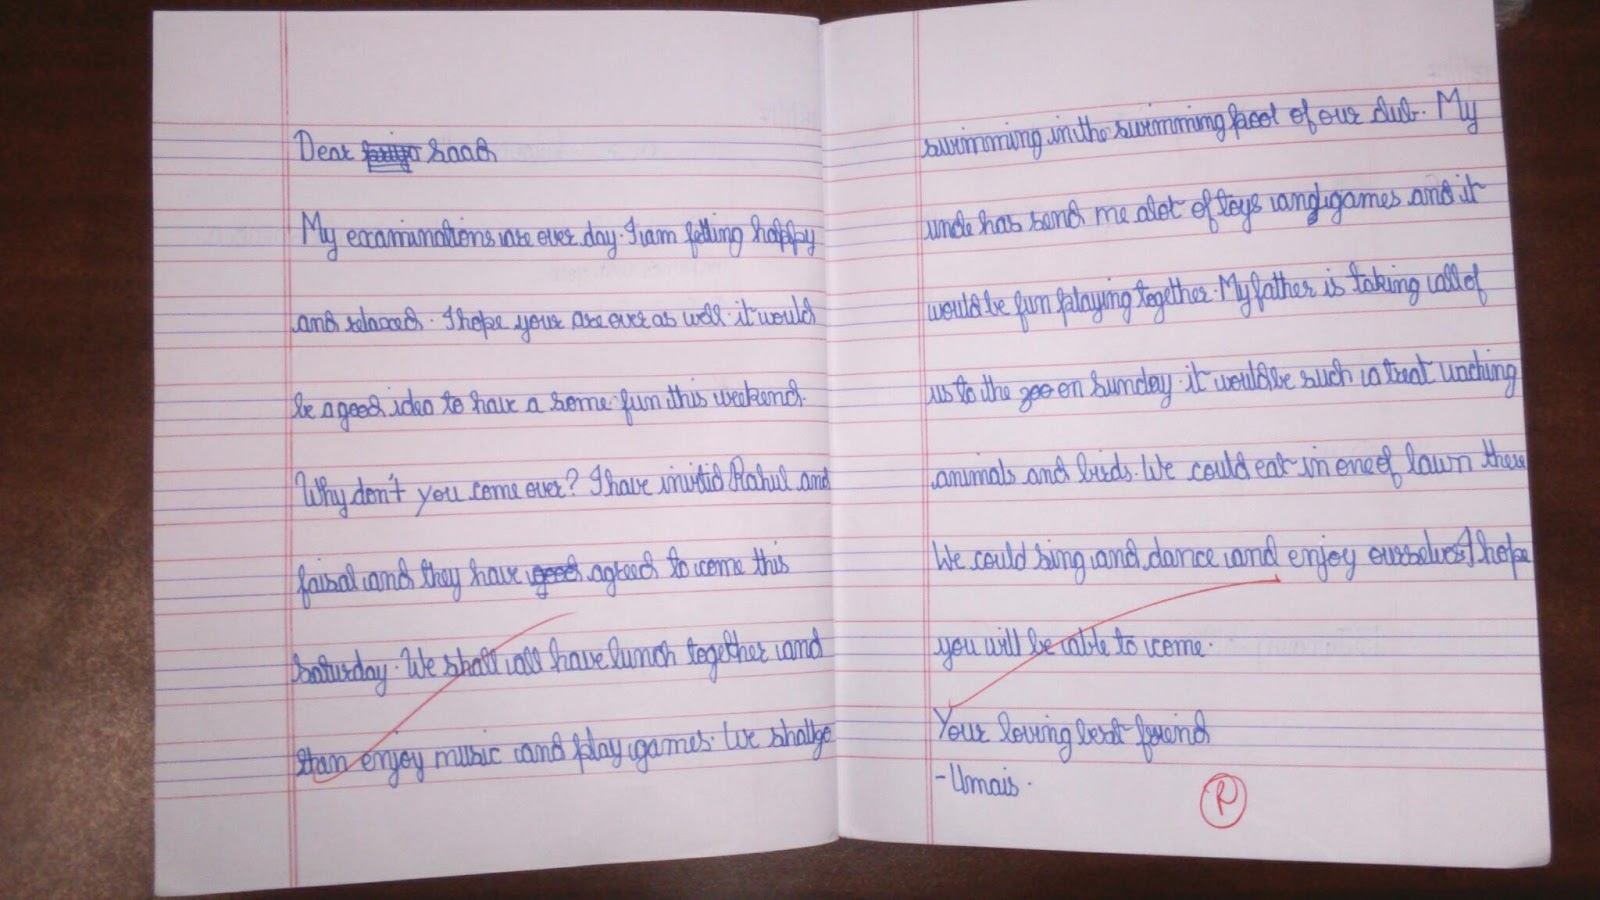 Dear Saad
My examinations are over day. I am felling happy
and relaxed. I hope your are over as well. it would
be a good idea to have a some fun this weekend.
Why don't you come over? I have invitid Rahul and
faisal and they have agreed to come this
saturday. We shall all have lunch together and
than enjoy music and play games. We shall go
swimming in the swimming pool of our club. My
uncle has send me alot of toys and games and it
would be fun playing together. My father is taking all of
us to the zoo on sunday. it would be such a treat
animals and birds. We could eat in one of lawn there
We could sing and dance and enjoy ourselves. I hope
you will be able to come.
Your loving best friend
- Umais.
R